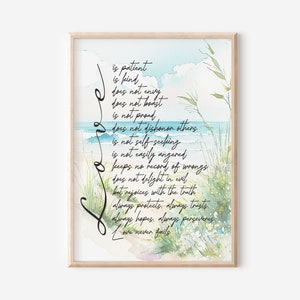 Love
is patient
is kind
does not envy
does not boast
is not proud
does not dishonor others
is not self-seeking
is not easily angered
keeps no record of wrongs
does not delight in evil
but rejoices with the truth
always protects, always trusts
always hopes, always perseveres
Love never fails